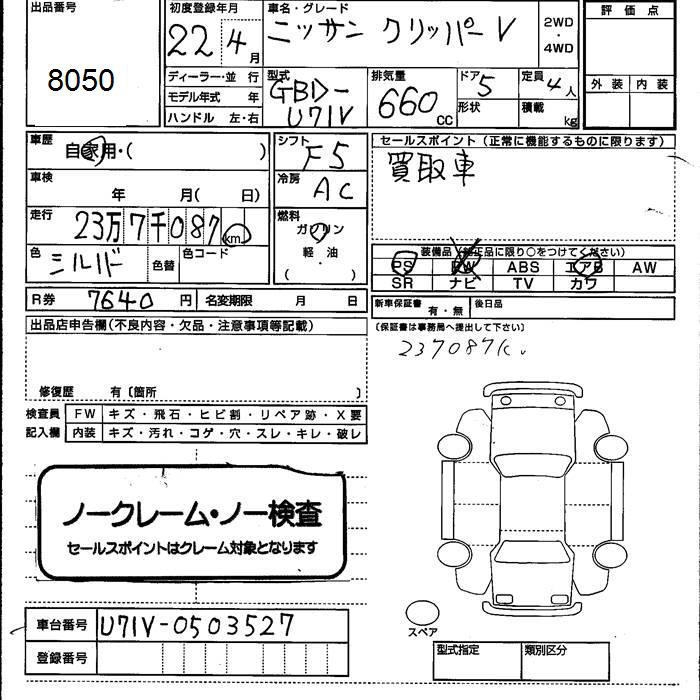 出品番号
8050
初度登録年月
22年4月
車名・グレード
ニッサン クリッパーV
2WD
・
4WD
評価点
外装 内装
ディーラー・並行
モデル年式 年
ハンドル 左・右
型式
GBD-
U71V
排気量
660cc
ドア 5
形状
定員 4人
積載 kg
車歴
自家用・( )
シフト
F5
セールスポイント(正常に機能するものに限ります)
買取車
車検
年 月( 日)
冷房
AC
走行
23万7千087km
燃料
ガソリン
軽・油
( ・ )
色
シルバー
色替
色コード
装備品(純正品に限り○をつけてください)
PS PW ABS エアB AW
SR ナビ TV カワ
R券 7640円 名変期限 月 日
新車保証書 有・無 後日品
(保証書は事務局へ提出して下さい)
237087K.
出品店申告欄(不良内容・欠品・注意事項等記載)
修復歴 有〔箇所 〕
検査員 FW キズ・飛石・ヒビ割・リペア跡・X要
記入欄 内装 キズ・汚れ・コゲ・穴・スレ・キレ・破レ
ノークレーム・ノー検査
セールスポイントはクレーム対象となります
車台番号 U71V-0503527
登録番号
スペア
型式指定 類別区分